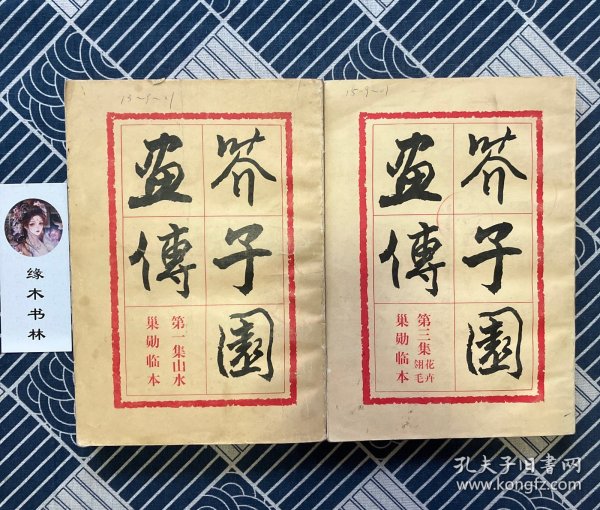 13-9-1
芥子園
畫傳
第一集山水
巢勋临本
15-9-1
芥子園
畫傳
第三集花卉翎毛
巢勋临本
缘木书林
孔夫子旧书网
www.kongfz.com